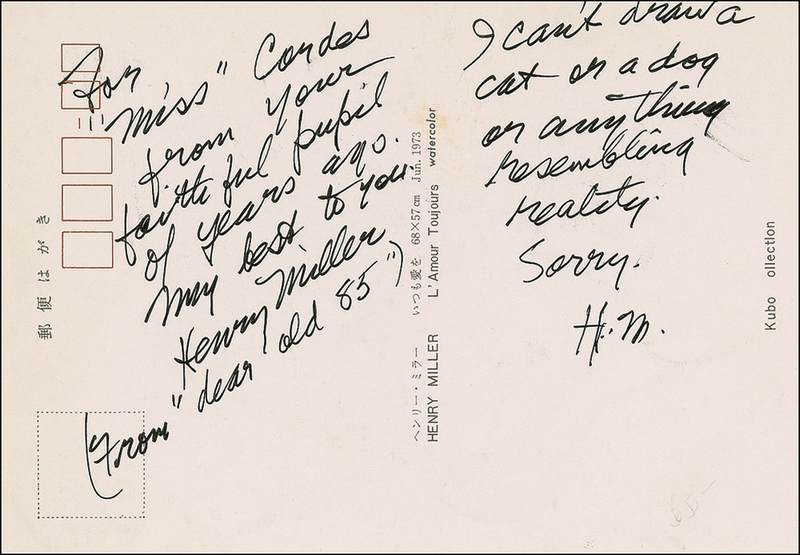 For
"Miss" Cordes
from your
faithful pupil
of years ago.
My best to you.
Henry Miller
(From "dear old 85")
I can't draw a
cat or a dog
or anything
resembling
reality.
Sorry.
H.M.
郵便はがき
ヘンリー・ミラー いつも愛を 68×57cm Jun. 1973
HENRY MILLER L'Amour Toujours watercolor
Kubo ollection
65-